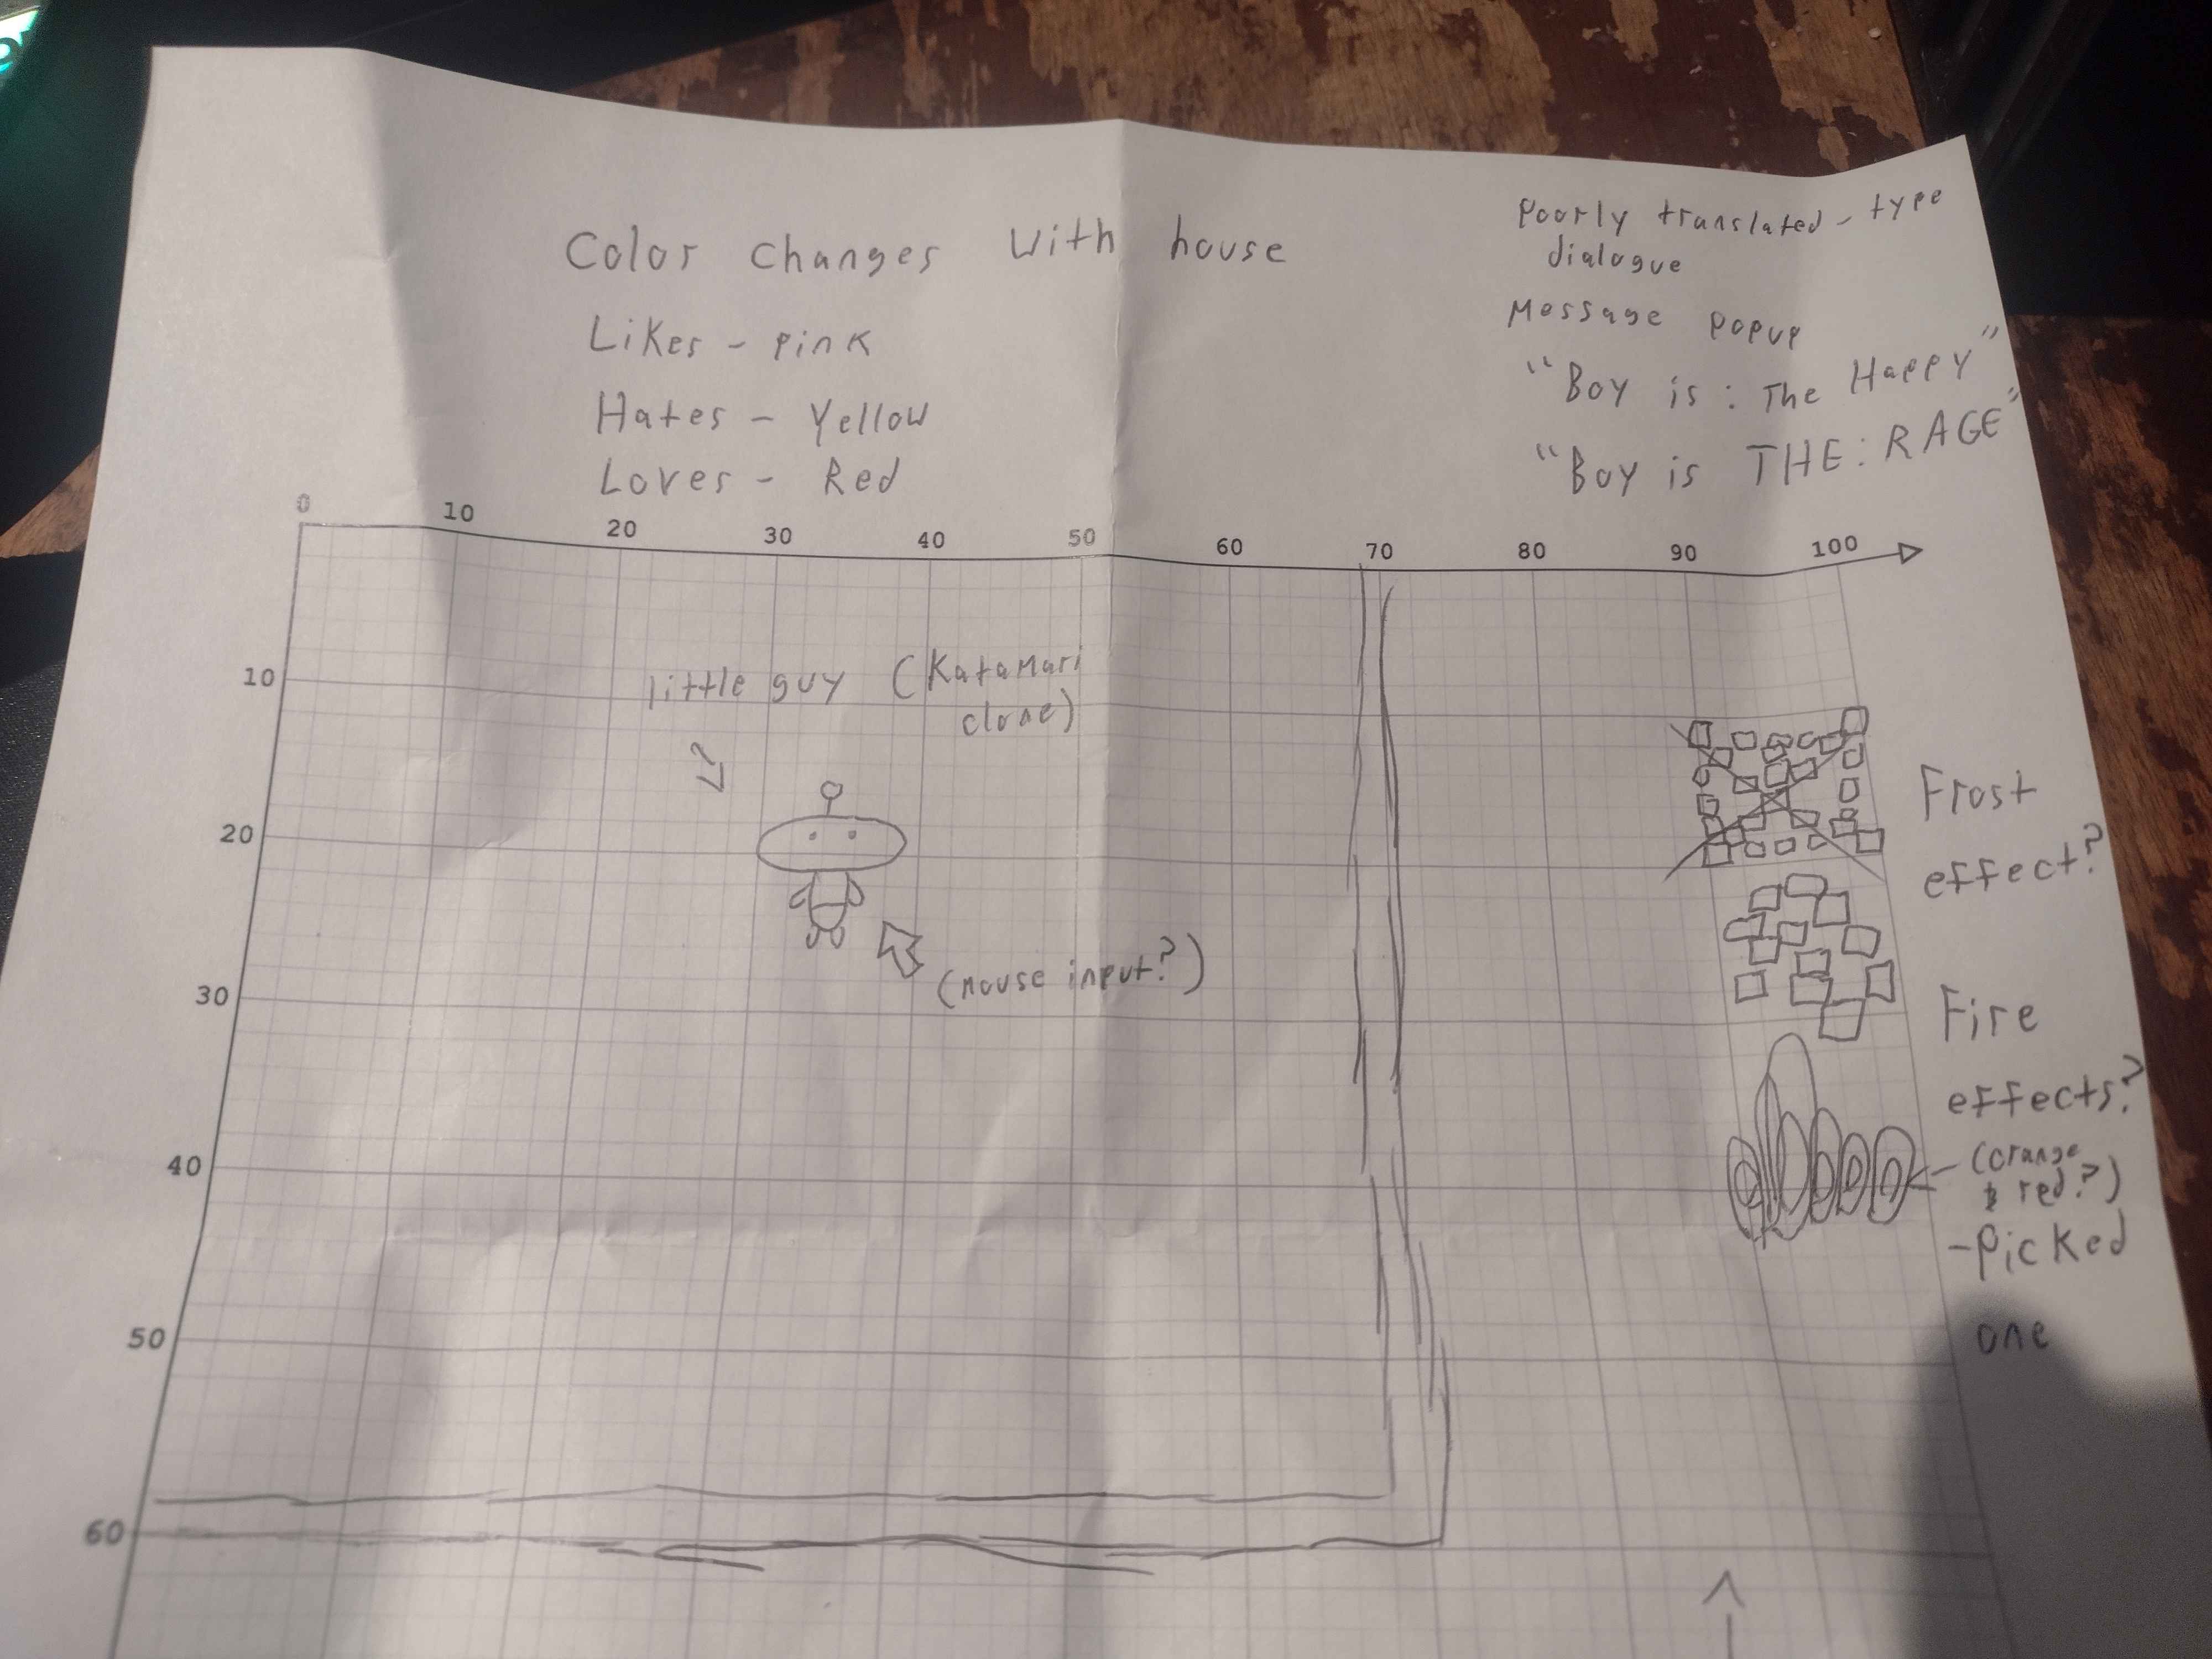 Color changes with house
Likes - pink
Hates - Yellow
Loves - Red
Poorly translated-type
dialogue
Message popup
"Boy is: The Happy"
"Boy is THE: RAGE"
0 10 20 30 40 50 60 70 80 90 100
10
20
30
40
50
60
little guy (Katamari
clone)
(mouse input?)
Frost
effect?
Fire
effects?
- (orange
& red?)
- Picked
one